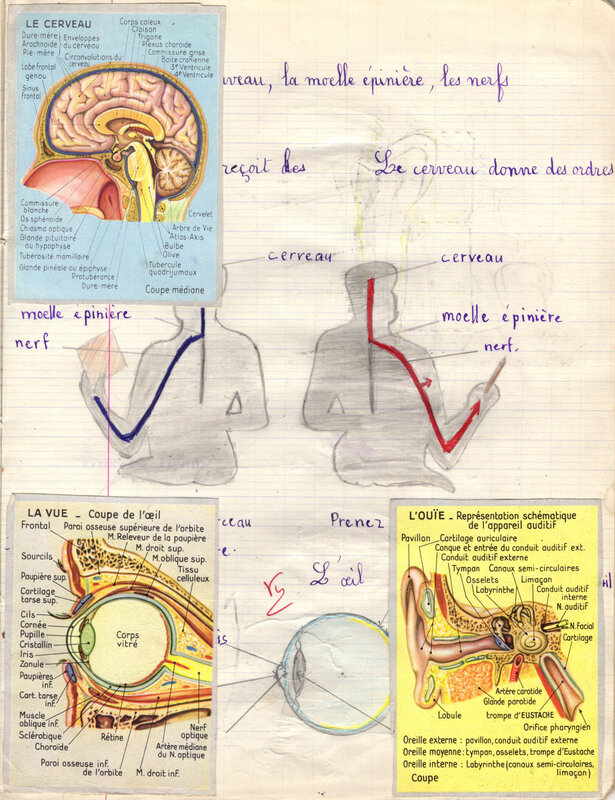 LE CERVEAU
Dure-mère
Arachnoïde
Pie-mère
Enveloppes
du cerveau
Circonvolutions du
cerveau
Lobe frontal
genou
Sinus
frontal
Corps caleux
Cloison
Trigone
Plexus choroïde
Commissure grise
Boîte crânienne
3e Ventricule
4e Ventricule
Commissure
blanche
Os sphénoïde
Chiasma optique
Glande pituitaire
ou hypophyse
Tuberosité mamillaire
Glande pinéale ou épiphyse
Protubérance
Dure-mère
Cervelet
Arbre de Vie
Atlas-Axis
Bulbe
Olive
Tubercule
quadrijumaux
Coupe médiane
veau, la moelle épinière, les nerfs
reçoit des
Le cerveau donne des ordres
cerveau
moelle épinière
nerf
cerveau
moelle épinière
nerf.
LA VUE - Coupe de l'œil
Frontal
Paroi osseuse supérieure de l'orbite
M. Releveur de la paupière
M. droit sup.
M. oblique sup.
Tissu
celluleux
Sourcils
Paupière sup.
Cartilage
tarse sup.
Cils
Cornée
Pupille
Cristallin
Iris
Zonule
Paupières
inf.
Cart. tarse
inf.
Muscle
oblique inf.
Sclérotique
Choroïde
Corps
vitré
Rétine
Nerf
optique
Artère médiane
du N. optique
Paroi osseuse inf.
de l'orbite
M. droit inf.
rceau
Prenez
L'œil
L'OUÏE - Représentation schématique
de l'appareil auditif
Pavillon
Cartilage auriculaire
Conque et entrée du conduit auditif ext.
Conduit auditif externe
Tympan
Canaux semi-circulaires
Osselets
Limaçon
Labyrinthe
Conduit auditif
interne
N. auditif
N. Facial
Cartilage
Artère carotide
Glande parotide
Lobule
trompe d'EUSTACHE
Orifice pharyngien
Oreille externe : pavillon, conduit auditif externe
Oreille moyenne : tympan, osselets, trompe d'Eustache
Oreille interne : Labyrinthe (canaux semi-circulaires,
limaçon)
Coupe